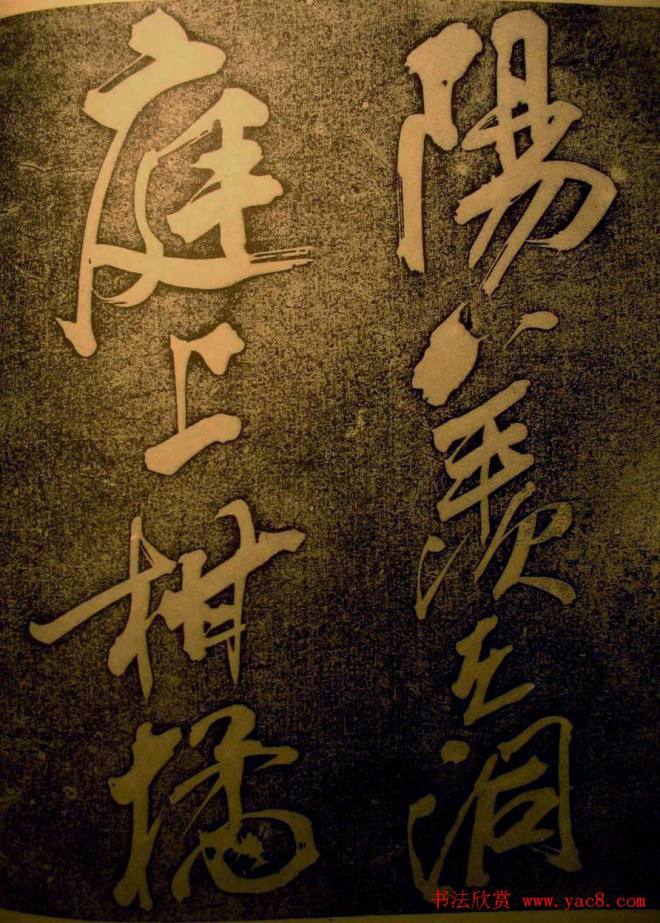 陽羨在洞
庭上柑橘
书法欣赏 www.yac8.com